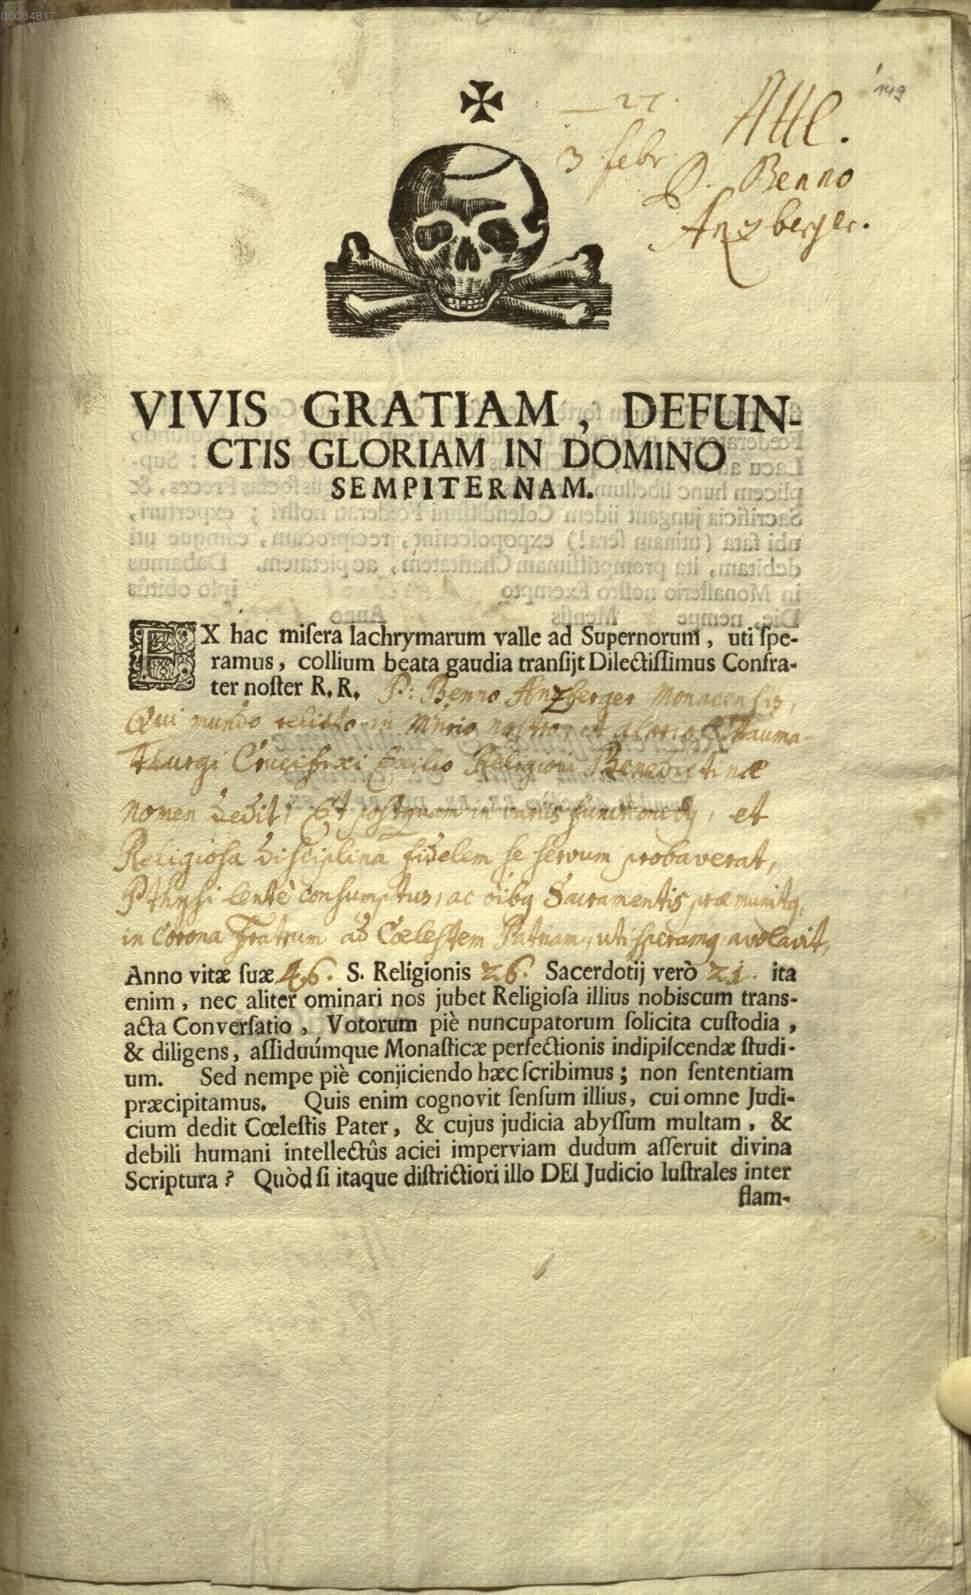 00034817
149
27.
3 febr.
Att l.
P. Benno
Anzberger.
VIVIS GRATIAM, DEFUN-
CTIS GLORIAM IN DOMINO
SEMPITERNAM.
EX hac misera lachrymarum valle ad Supernorum, uti spe-
ramus, collium beata gaudia transijt Dilectissimus Confra-
ter noster R. R. P: Benno Anzberger Monacensis,
Qui mundo relicto in Mnrio nostro, et Thauma-
thurgi Crucifixi Religioni Benedictinæ
nomen dedit; Et postquam in variis functionibq, et
Religiosa disciplina fidelem se servum probaverat,
Pthysi lentè consumptus, ac oibq Sacramentis præmunitq,
in corona Fratrum ad Cœlestem Patriam, uti speramq avolavit,
Anno vitæ suæ 46. S. Religionis 26. Sacerdotij verò 21. ita
enim, nec aliter ominari nos jubet Religiosa illius nobiscum trans-
acta Conversatio, Votorum piè nuncupatorum solicita custodia,
& diligens, assiduúmque Monasticæ perfectionis indipiscendæ studi-
um. Sed nempe piè conjiciendo hæc scribimus; non sententiam
præcipitamus. Quis enim cognovit sensum illius, cui omne Judi-
cium dedit Cœlestis Pater, & cujus judicia abyssum multam, &
debili humani intellectûs aciei imperviam dudum asseruit divina
Scriptura? Quòd si itaque districtiori illo DEI Judicio lustrales inter
flam-